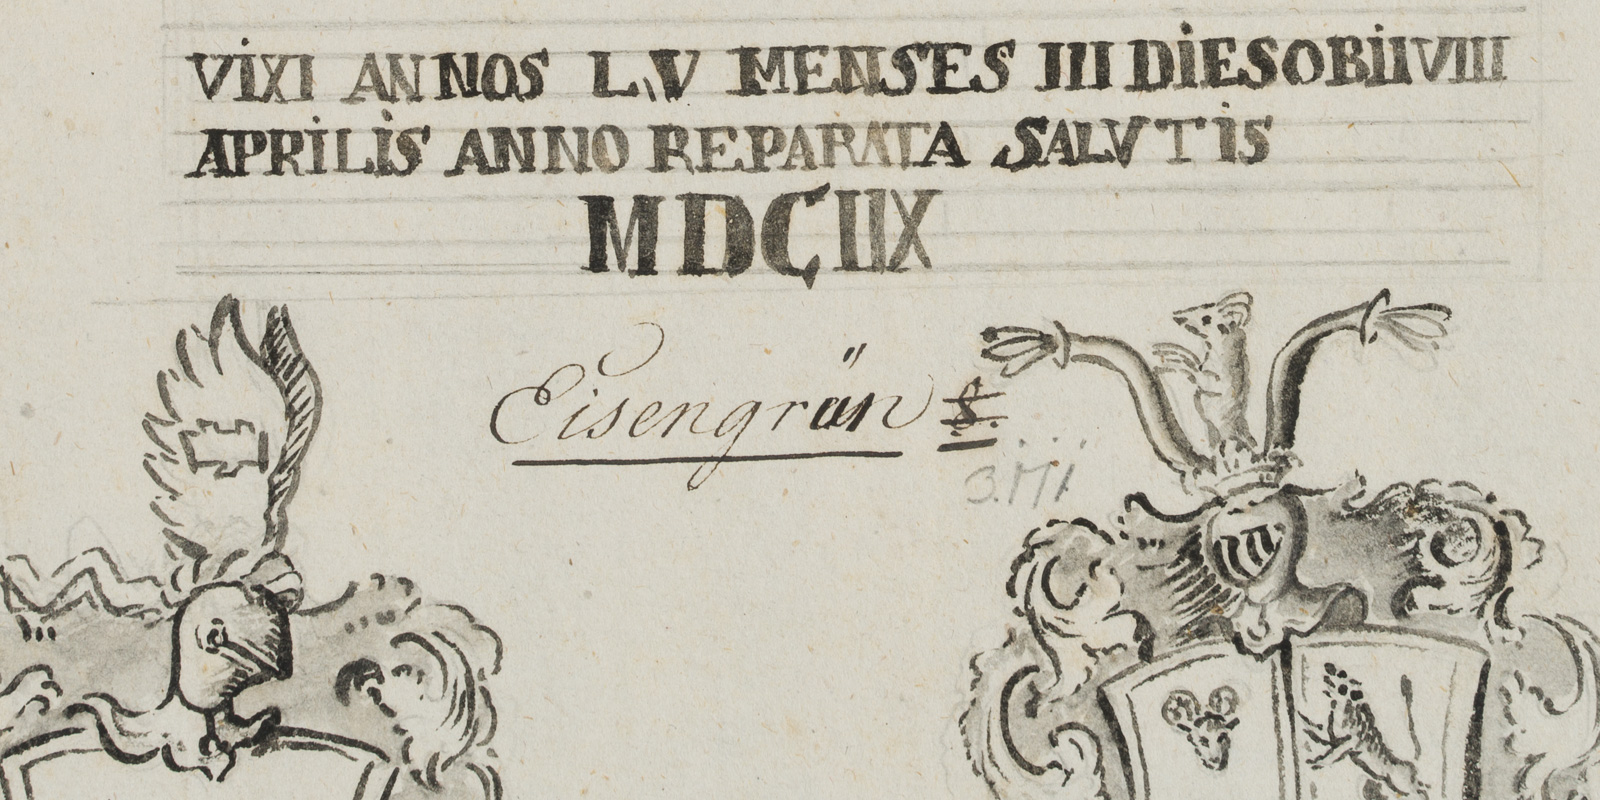 VIXI ANNOS LV MENSES III DIES OBII VIII
APRILIS ANNO REPARATA SALVTIS
MDCIIX
Eisengrün